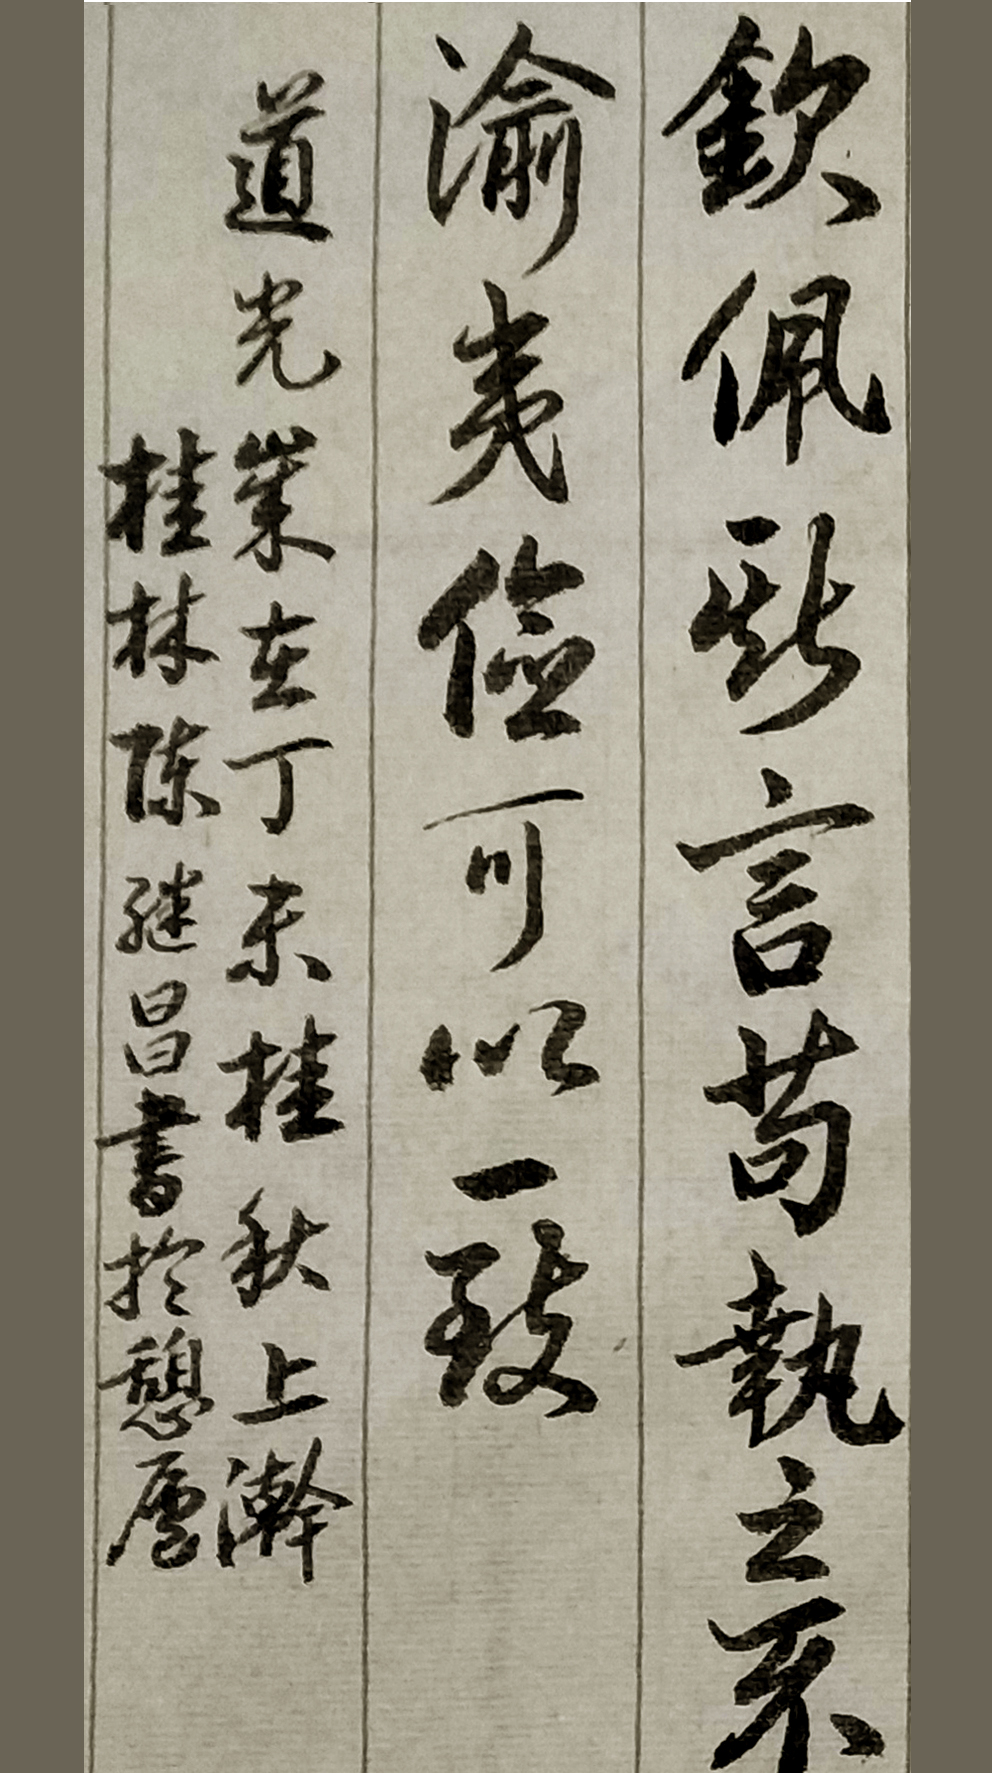 欽佩斯言苟執之不
渝夷儉可以一致
道光歲在丁未桂秋上澣
桂林陳繼昌書於憩廬